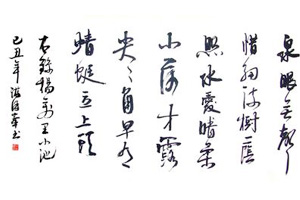 泉眼無聲
惜細流樹蔭
照水愛晴柔
小荷才露
尖々角早有
蜻蜓立上頭
右錄楊萬里小池
己丑年書